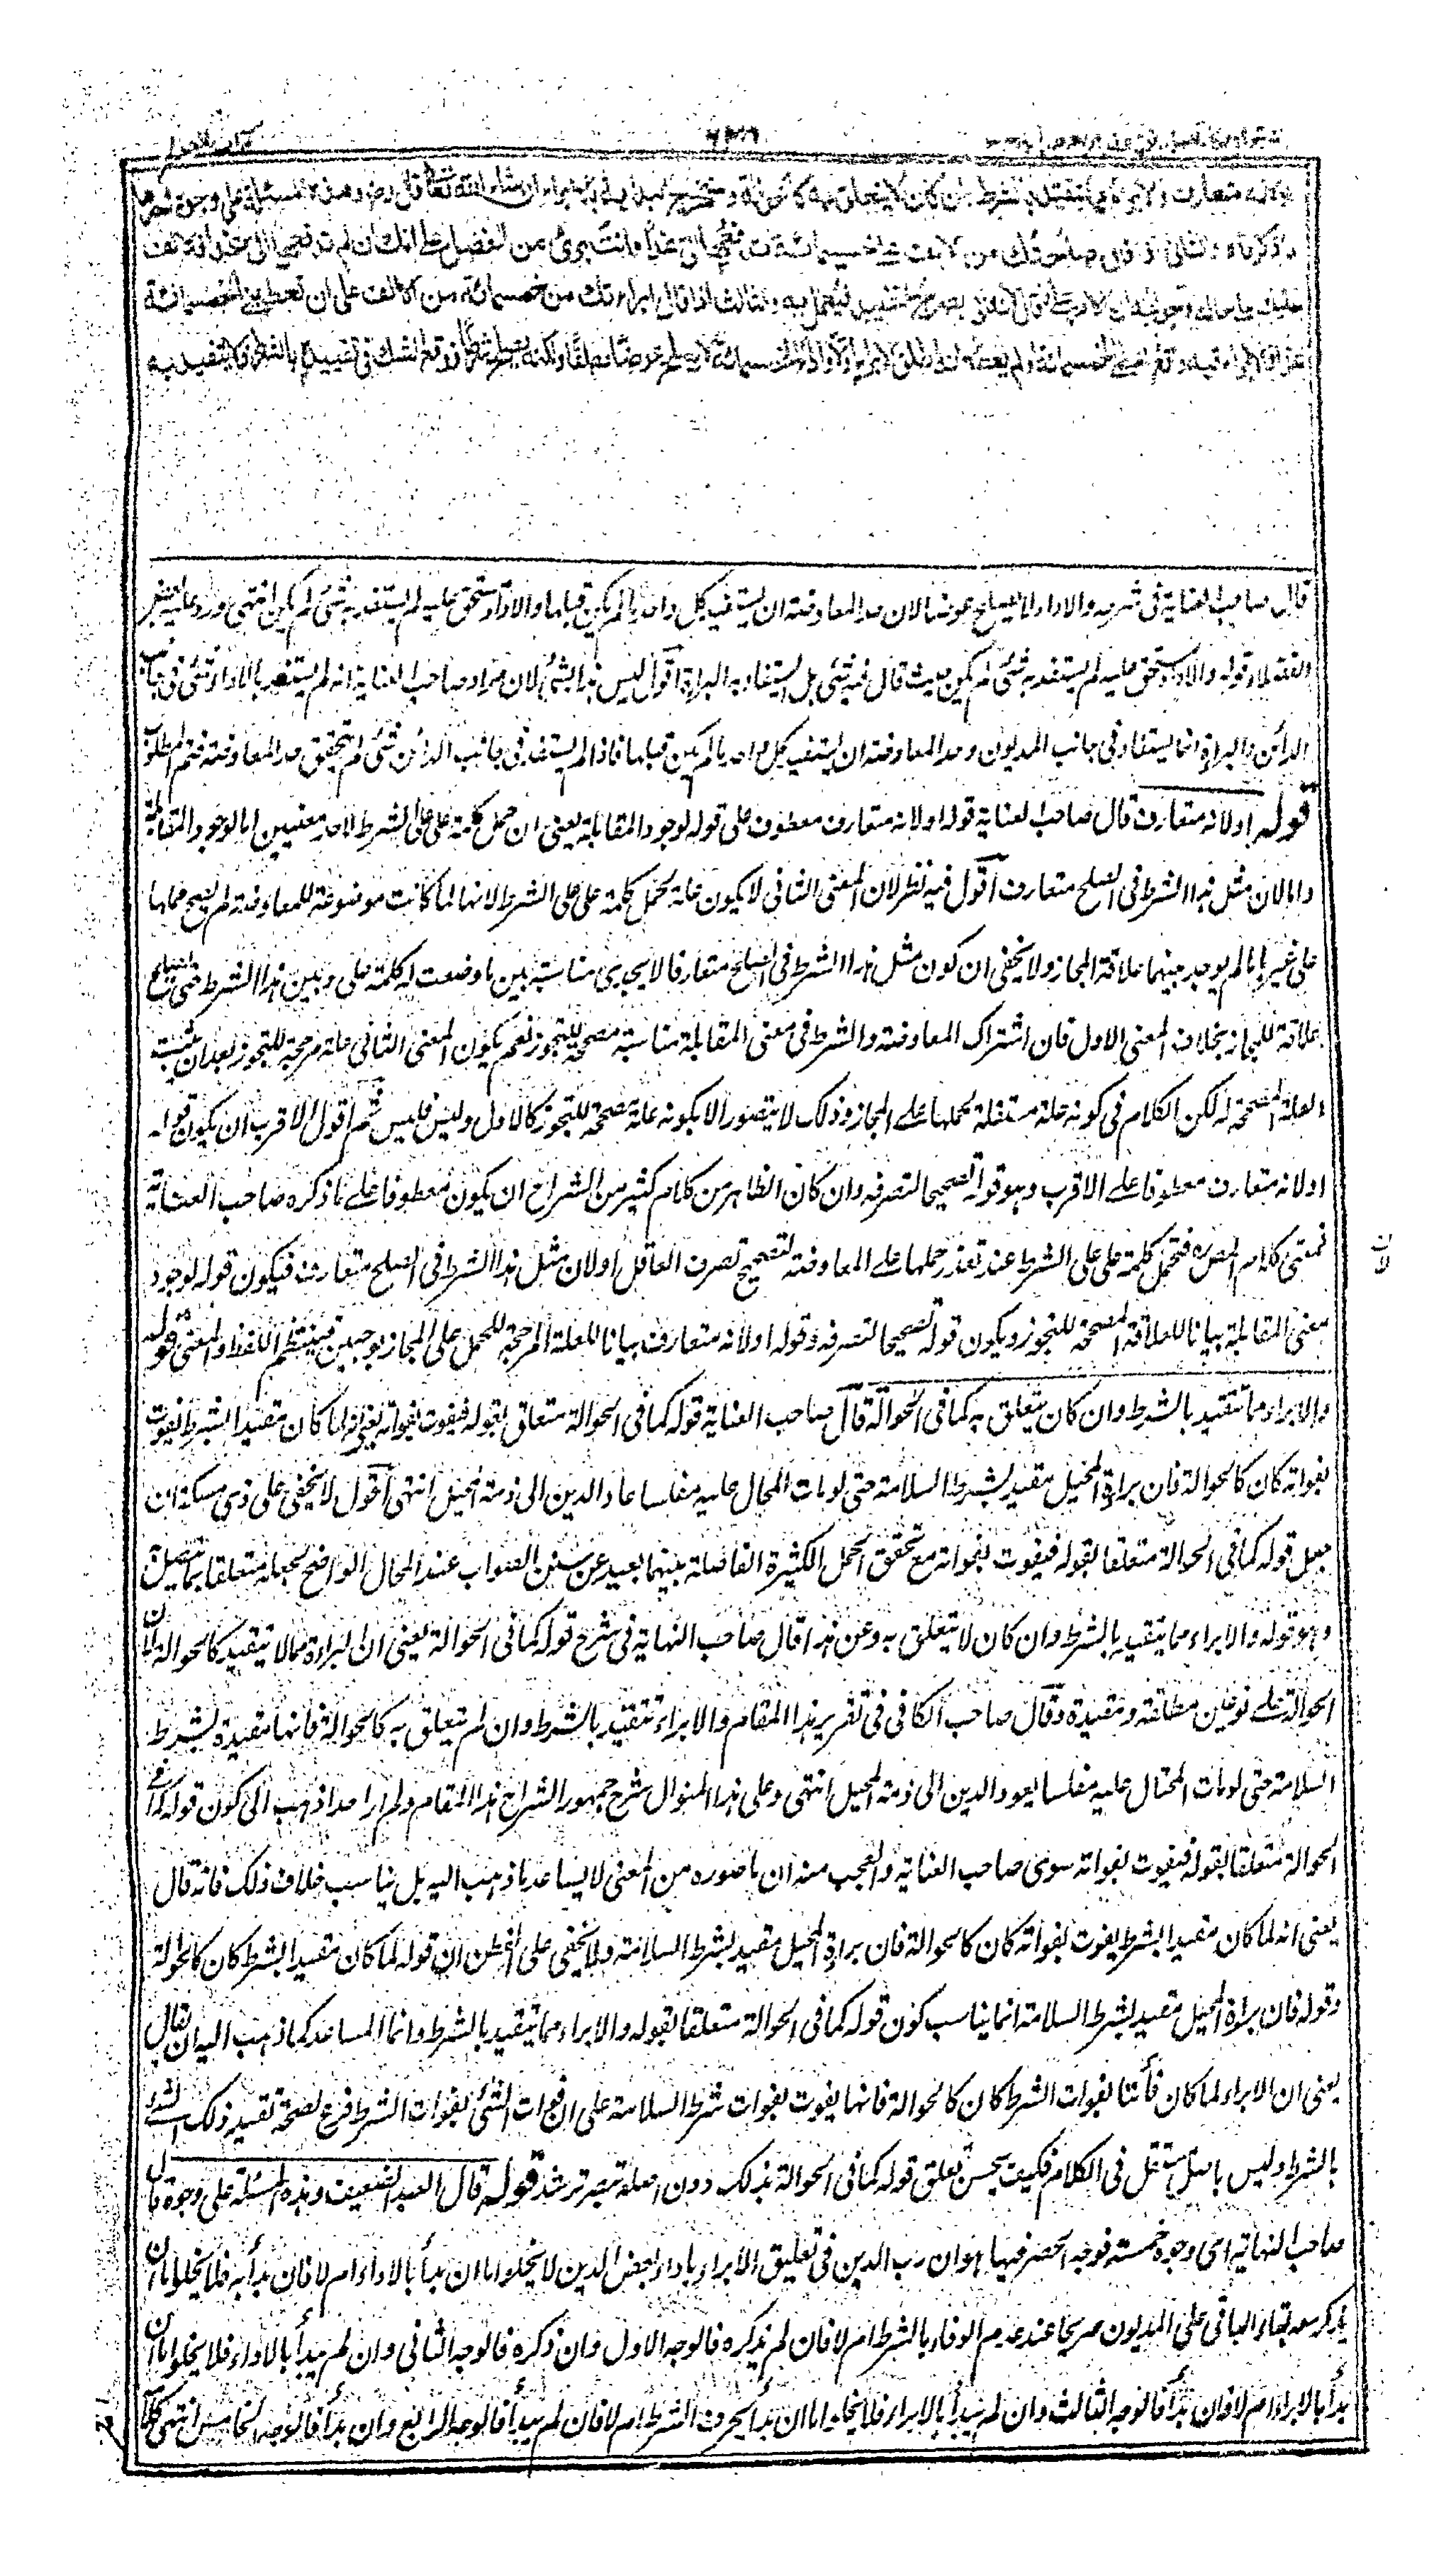 او لانه متعارف والابراء مما يتقيد بالشرط وان كان لا يتعلق به كما فى الحوالة وسنخرج البداية بالابراء ان شاء الله تعالى قال رض وهذه المسئلة على وجوه احدها
ما ذكرناه والثانى اذا قال صالحتك من الالف على خمسمائة تدفعها الى غدا وانت برىء من الفضل على انك ان لم تدفعها الى غدا فالالف
عليك على حاله وجوابه ان الامر على ما قال لانه اتى بصريح التقييد فيعمل به والثالث اذا قال ابرأتك من خمسمائة من الالف على ان تعطينى الخمسمائة
غدا فالابراء فيه واقع اعطى الخمسمائة او لم يعط لانه اطلق الابراء اولا واداء الخمسمائة لا يصلح عوضا مطلقا ولكنه يصلح شرطا فوقع الشك فى تقييده بالشرط فلا يتقيد به
قال صاحب العناية فى شرحه والاداء لا يصلح عوضا لان حد المعاوضة ان يستفيد كل واحد ما لم يكن قبلها والاداء مستحق عليه لم يستفد به شئ لم يكن انتهى ورد عليه بعض
الفضلاء قوله والاداء مستحق عليه لم يستفد به شئ لم يكن حيث قال فيه شئ بل استفاد به البراءة اقول ليس هذا بشئ لان مراد صاحب العناية انه لم يستفد بالاداء شئ فى جانب
الدائن والبراءة انما يستفاد فى جانب المديون وحد المعاوضة ان يستفيد كل واحد ما لم يكن قبلها فاذا لم يستفد فى جانب الدائن شئ لم يتحقق حد المعاوضة فتم المطلوب
قوله او لانه متعارف قال صاحب العناية قوله او لانه متعارف معطوف على قوله لوجود المقابلة يعنى ان حمل كلمة على على الشرط لاحد معنيين اما لوجود المقابلة
واما لان مثل هذا الشرط فى الصلح متعارف اقول فيه نظر لان المعنى الثانى لا يكون علة لحمل كلمة على على الشرط لانها لما كانت موضوعة للمعاوضة لم يصح حملها
على غيرها ما لم يوجد بينهما علاقة المجاز ولا يخفى ان كون مثل هذا الشرط فى الصلح متعارفا لا يجدى مناسبة بين ما وضعت له كلمة على وبين هذا الشرط حتى يصلح
علاقة للمجاز بخلاف المعنى الاول فان اشتراك المعاوضة والشرط فى معنى المقابلة مناسبة مصححة للتجوز نعم يكون المعنى الثانى علة مرجحة للتجوز بعد ان يثبت
العلة المصححة له لكن الكلام فى كونه علة مستقلة لحملها على المجاز وذلك لا يتصور الا بكونه علة مصححة للتجوز كالاول وليس فليس ثم اقول الاقرب ان يكون قوله
او لانه متعارف معطوفا على الاقرب وهو قوله تصحيحا لتصرفه وان كان الظاهر من كلام كثير من الشراح ان يكون معطوفا على ما ذكره صاحب العناية
فمعنى كلام المصره فتحمل كلمة على على الشرط عند تعذر حملها على المعاوضة لتصحيح تصرف العاقل او لان مثل هذا الشرط فى الصلح متعارف فيكون قوله لوجود
معنى المقابلة بيانا للعلاقة المصححة للتجوز ويكون قوله تصحيحا لتصرفه وقوله او لانه متعارف بيانا للعلة المرجحة للحمل على المجاز بوجهين فينتظم اللفظ والمعنى قوله
والابراء مما يتقيد بالشرط وان كان يتعلق به كما فى الحوالة قال صاحب العناية قوله كما فى الحوالة متعلق بقوله فيفوت بفواته يعنى انه لما كان مقيدا بشرط يفوت
بفواته كان كالحوالة فان براءة المحيل مقيد بشرط السلامة حتى لو مات المحال عليه مفلسا عاد الدين الى ذمة المحيل انتهى اقول لا يخفى على ذى مسكة ان
جعل قوله كما فى الحوالة متعلقا بقوله فيفوت بفواته مع تحقق الجمل الكثيرة الفاصلة بينهما بعيد عن سنن الصواب عند المحال الواضح لجعله متعلقا بما يتصل به
وهو قوله والابراء مما يتقيد بالشرط وان كان لا يتعلق به وعن هذا قال صاحب النهاية فى شرح قوله كما فى الحوالة يعنى ان البراءة مما لا يتقيد كالحوالة لان
الحوالة على نوعين مطلقة ومقيدة وقال صاحب الكافى فى تقرير هذا المقام والابراء تتقيد بالشرط وان لم يتعلق به كالحوالة فانها مقيدة بشرط
السلامة حتى لو مات المحتال عليه مفلسا يعود الدين الى ذمة المحيل انتهى وعلى هذا المنوال شرح جمهور الشراح هذا المقام ولم ار احدا ذهب الى كون قوله كما فى
الحوالة متعلقا بقوله فيفوت بفواته سوى صاحب العناية والعجب منه ان ما صوره من المعنى لا يساعد ما ذهب اليه بل يناسب خلاف ذلك فانه قال
يعنى انه لما كان مقيدا بشرط يفوت بفواته كان كالحوالة فان براءة المحيل مقيد بشرط السلامة ولا يخفى على الفطن ان قوله لما كان مقيدا بالشرط كان كالحوالة
وقوله فان براءة المحيل مقيد بشرط السلامة انما يناسب كون قوله كما فى الحوالة متعلقا بقوله والابراء مما يتقيد بالشرط وانما المساعد كما ذهب اليه ان يقال
يعنى ان الابراء لما كان فائتا بفوات الشرط كان كالحوالة فانها يفوت بفوات شرط السلامة على ان فوات الشئ بفوات الشرط فرع لصحة تقييد ذلك الشئ
بالشرط وليس باصل مستقل فى الكلام فكيف يحسن تعلق قوله كما فى الحوالة بذلك دون اصله تبصر ترشد قوله قال العبد الضعيف وهذه المسئلة على وجوه قال
صاحب النهاية اى وجوه خمسة فوجه الحصر فيها هو ان رب الدين فى تعليق الابراء باداء بعض الدين لا يخلو اما ان بدأ بالاداء ام لا فان بدأ به فلا يخلو اما ان
يذكر معه بقاء الباقى على المديون صريحا عند عدم الوفاء بالشرط ام لا فان لم يذكره فالوجه الاول وان ذكره فالوجه الثانى وان لم يبدأ بالاداء فلا يخلو اما ان
بدأ بالابراء ام لا فان بدأ فالوجه الثالث وان لم يبدأ بالابراء فلا يخلو اما ان بدأ بحرف الشرط ام لا فان لم يبدأ فالوجه الرابع وان بدأ فالوجه الخامس انتهى كلامه